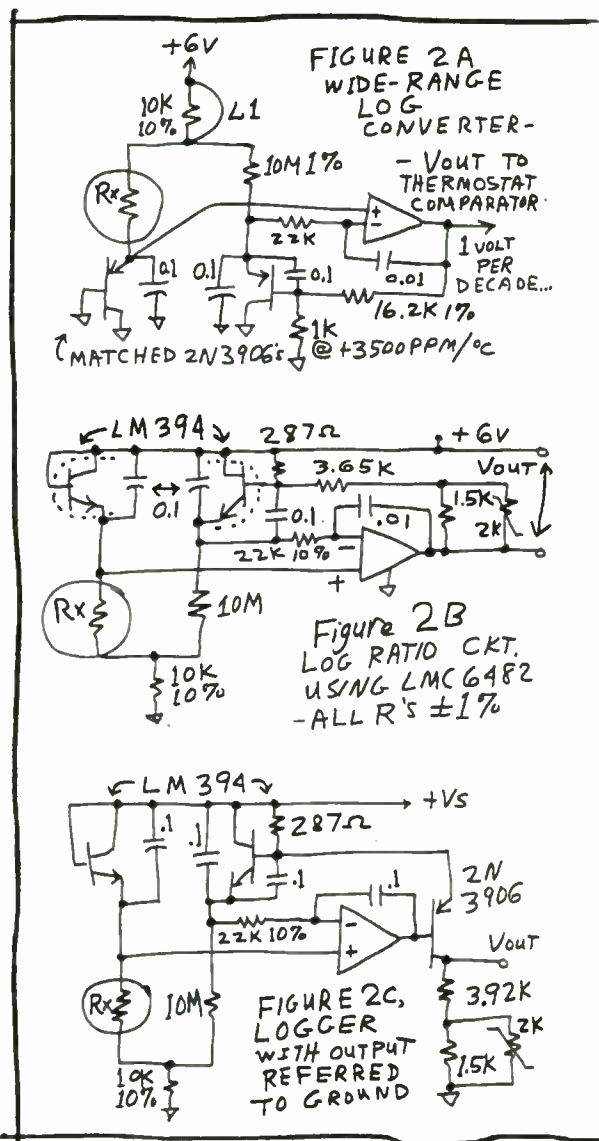 +6V
FIGURE 2A
WIDE-RANGE
LOG
CONVERTER-
10K
10%
L1
10M 1%
- VOUT TO
THERMOSTAT
COMPARATOR
Rx
+
-
22K
1 VOLT
PER
DECADE...
0.1
0.1
0.1
0.01
16.2K 1%
1K
@ +3500PPM/°C
MATCHED 2N3906's
LM394
287Ω
+6V
3.65K
VOUT
1.5K
2K
0.1
0.1
.01
22K 10%
-
+
Rx
10M
10K
10%
Figure 2B
LOG RATIO CKT.
USING LMC6482
-ALL R's ±1%
LM394
+Vs
.1
.1
287Ω
.1
.1
2N
3906
22K 10%
-
+
VOUT
Rx
10M
3.92K
2K
1.5K
10K
10%
FIGURE 2C,
LOGGER
WITH OUTPUT
REFERRED
TO GROUND